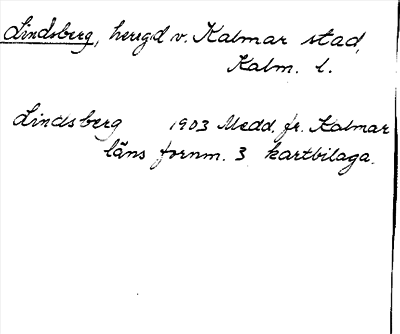 Lindsberg, herrgd v. Kalmar stad,
Kalm. l.
Lindsberg 1903 Medd. fr. Kalmar
läns fornm. 3 kartbilaga.